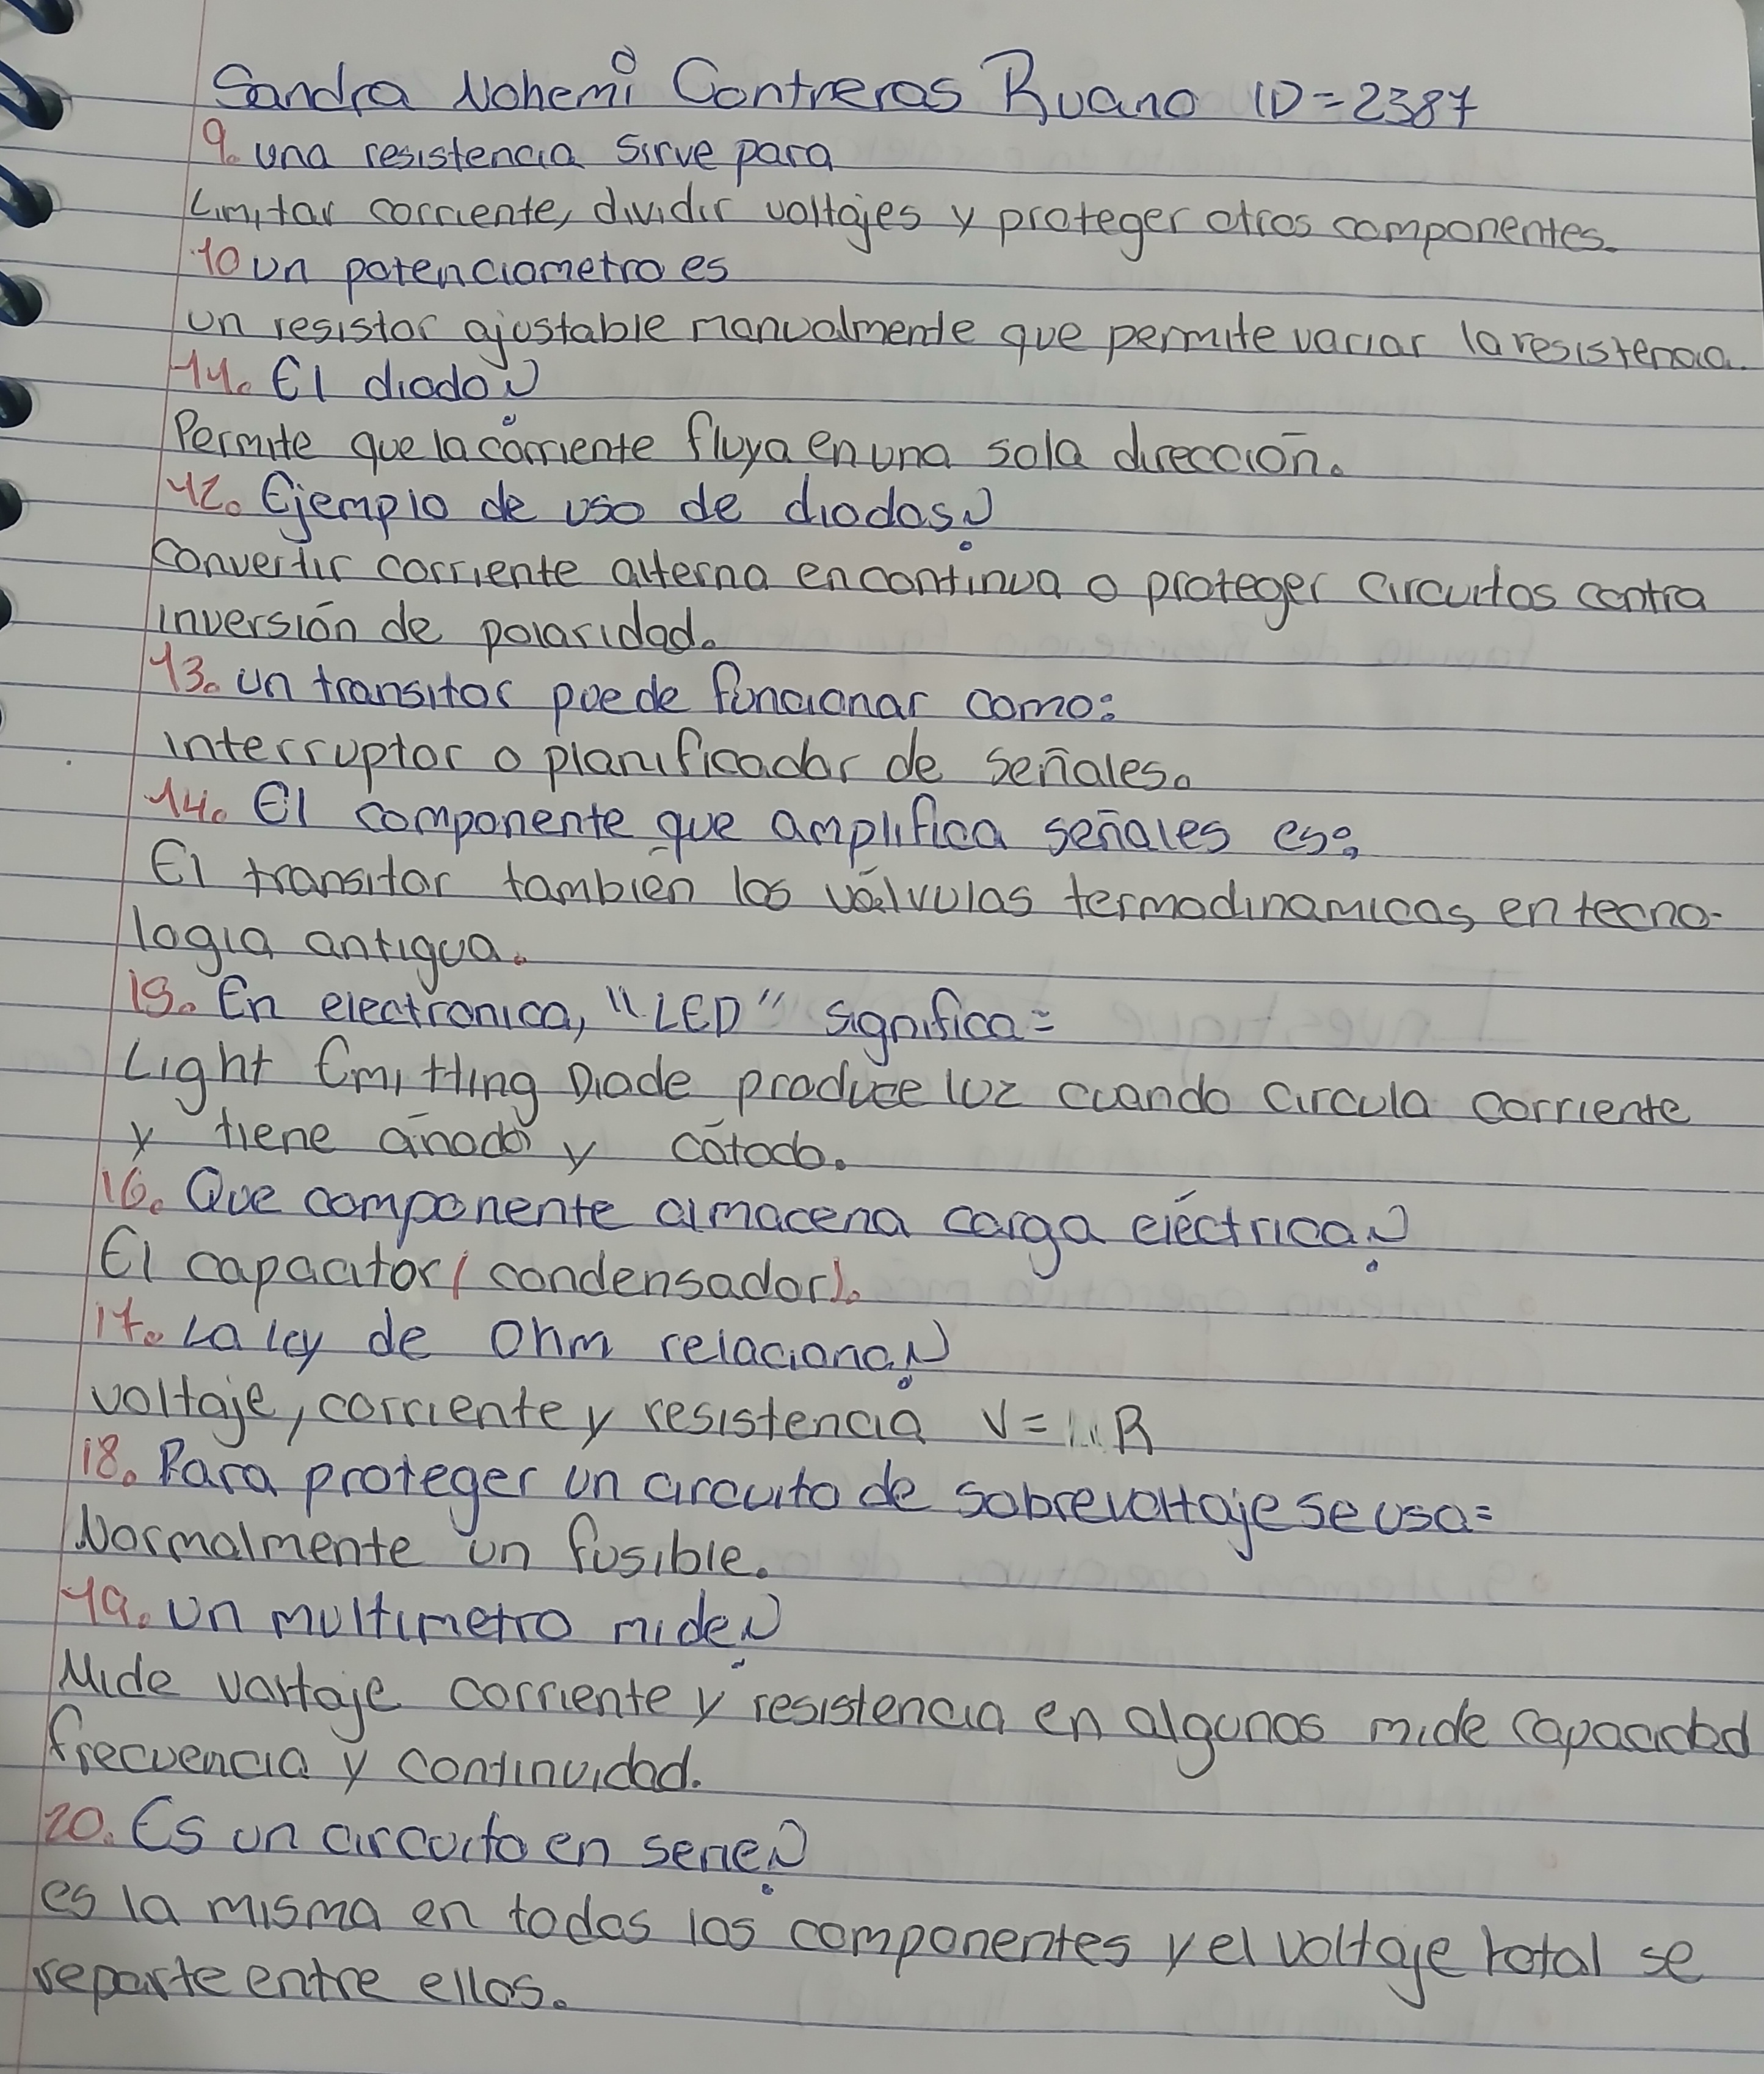 Sandra Nohemi Contreras Ruano ID=2387
9. una resistencia sirve para
Limitar corriente, dividir voltajes y proteger otros componentes.
10 un potenciometro es
un resistor ajustable manualmente que permite variar la resistencia.
11. El diodo?
Permite que la corriente fluya en una sola dirección.
12. Ejemplo de uso de diodos?
convertir corriente alterna en continua o proteger circuitos contra
inversión de polaridad.
13. un transitor puede funcionar como:
interruptor o planificador de señales.
14. El componente que amplifica señales es:
El transitor también las válvulas termodinamicas, en tecno-
logia antigua.
15. En electronica, "LED" significa=
Light Emitting Diode produce luz cuando circula corriente
y tiene ánodo y cátodo.
16. Que componente almacena carga eléctrica?
El capacitor (condensador).
17. La ley de Ohm relaciona?
voltaje, corriente y resistencia V= R
18. Para proteger un circuito de sobrevoltaje se usa=
Normalmente un fusible.
19. un multimetro mide?
Mide vortaje corriente y resistencia en algunos mide capacidad
frecuencia y continuidad.
20. Es un circuito en serie?
es la misma en todos los componentes y el voltaje total se
reparte entre ellos.